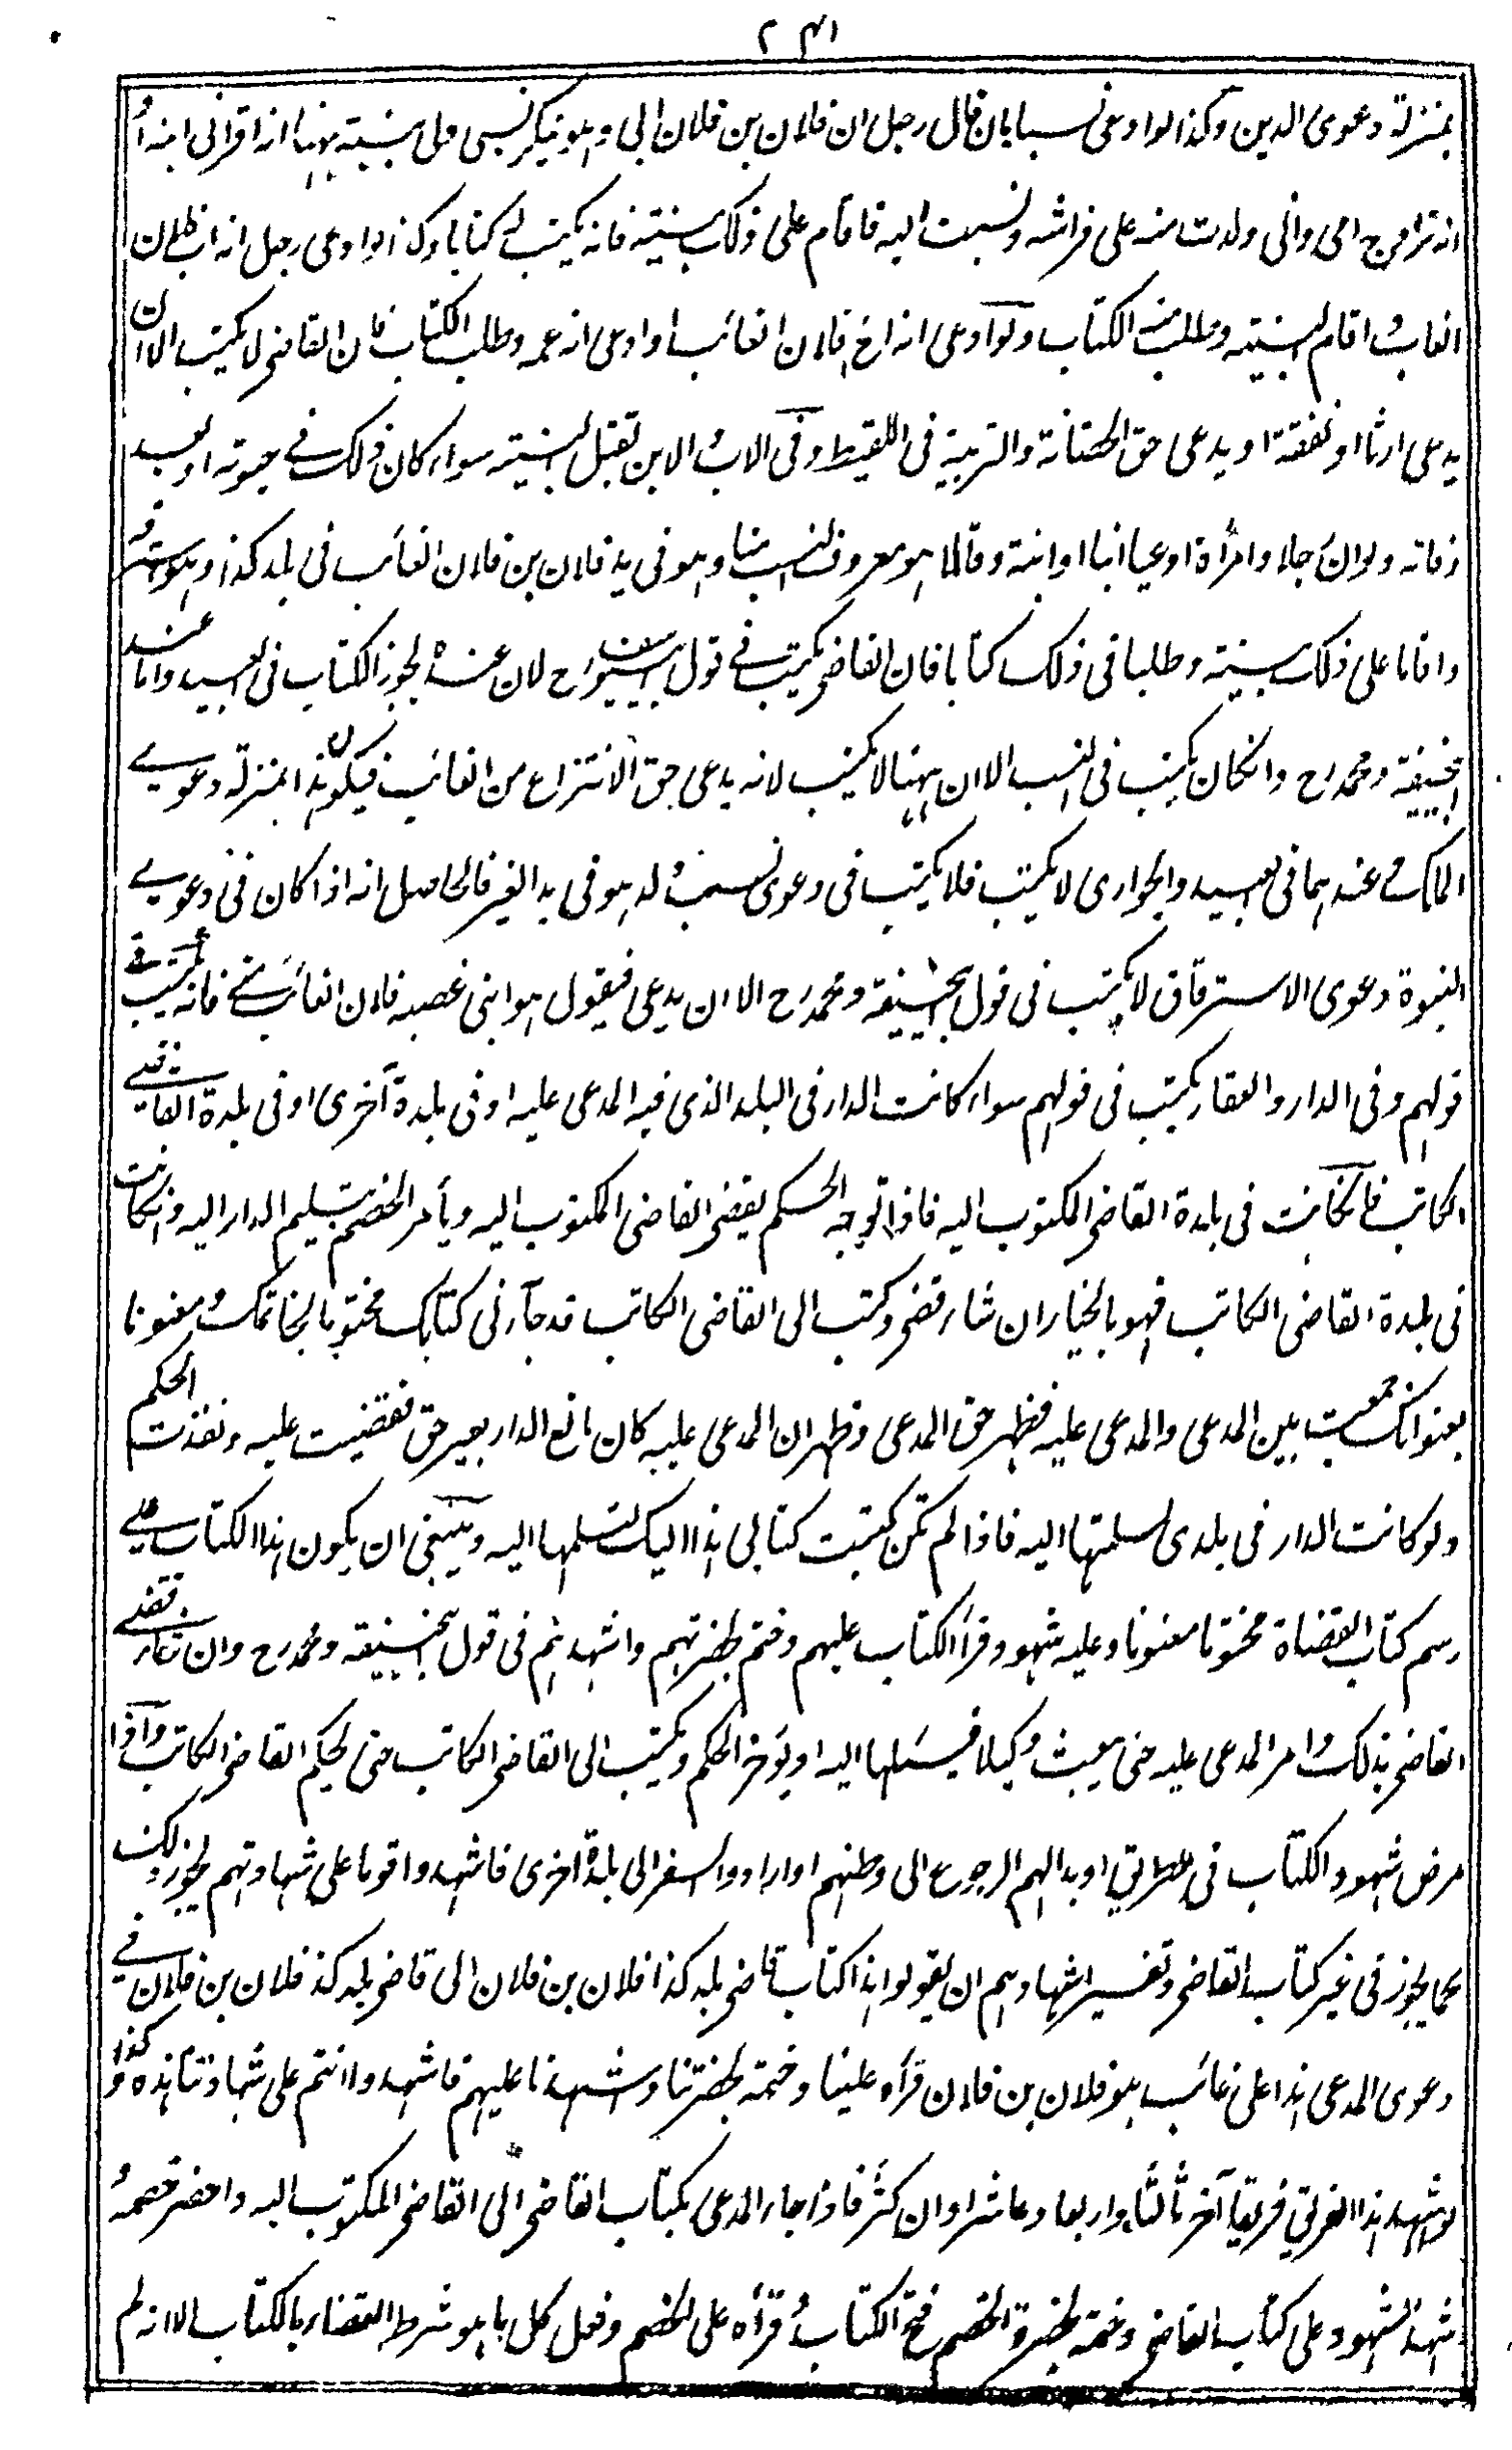 ٢٤١
بمنزلة دعوى الدين وكذا لو ادعى نسبا بان قال رجل ان فلان بن فلان ابى وهو ينكر نسبى ولى بينة ههنا انه اقر انى ابنه او
انه تزوج امى وانى ولدت منه على فراشه ونسبت اليه فاقام على ذلك بينة فانه يكتب له كتابا وكذا لو ادعى رجل انه اب فلان
الغائب واقام البينة وطلب منه الكتاب ولو ادعى انه اخ فلان الغائب او ادعى انه عمه وطلب الكتاب فان القاضى لا يكتب الا ان
يدعى ارثا او نفقة او يدعى حق الحضانة والتربية فى اللقيط وفى الاب والابن تقبل البينة سواء كان ذلك فى حيوته او بعد
وفاته ولو ان رجلا وامرأة ادعيا ابنا او ابنة وقالا هو معروف النسب منا وهو فى يد فلان بن فلان الغائب فى بلد كذا وهو يسترقه
واقاما على ذلك بينة وطلبا فى ذلك كتابا فان القاضى يكتب فى قول ابى يوسف رح لان عنده يجوز الكتاب فى العبيد واما عند
ابيحنيفة ومحمد رح وان كان يكتب فى النسب الا ان ههنا لا يكتب لانه يدعى حق الانتزاع من الغائب فيكون هذا بمنزلة دعوى
الملك وعندهما فى العبيد والجوارى لا يكتب فلا يكتب فى دعوى نسب ولد هو فى يد الغير فالحاصل انه اذا كان فى دعوى
البنوة دعوى الاسترقاق لا يكتب فى قول ابيحنيفة ومحمد رح الا ان يدعى فيقول هو ابنى غصبه فلان الغائب منى فانه يكتب فى
قولهم وفى الدار والعقار يكتب فى قولهم سواء كانت الدار فى البلد الذى فيه المدعى عليه او فى بلدة أخرى او فى بلدة القاضى
الكاتب فان كانت فى بلدة القاضى المكتوب اليه فاذا توجه الحكم يقضى القاضى المكتوب اليه ويأمر الخصم بتسليم الدار اليه وان كانت
فى بلدة القاضى الكاتب فهو بالخيار ان شاء قضى وكتب الى القاضى الكاتب قد جاءنى كتابك مختوما بخاتمك ومعنونا
بعنوانك جمعت بين المدعى والمدعى عليه فظهر حق المدعى وظهر ان المدعى عليه كان مانع الدار بغير حق فقضيت عليه ونفذت الحكم
ولو كانت الدار فى بلدى لسلمتها اليه فاذا لم تكن كتبت كتابى هذا اليك لتسلمها اليه وينبغى ان يكون هذا الكتاب على
رسم كتاب القضاة مختوما معنونا وعليه شهود وقرأ الكتاب عليهم وختم بحضرتهم واشهدهم فى قول ابيحنيفة ومحمد رح وان شاء قضى
القاضى بذلك وامر المدعى عليه حتى يبعث وكيلا فيسلمها اليه او يؤخر الحكم ويكتب الى القاضى الكاتب حتى يحكم القاضى الكاتب واذا
مرض شهود الكتاب فى الطريق او بدا لهم الرجوع الى وطنهم او ارادوا السفر الى بلدة اخرى فاشهدوا قوما على شهادتهم يجوز ذلك
كما يجوز فى غير كتاب القاضى وتفسير اشهادهم ان يقولوا هذا كتاب قاضى بلد كذا فلان بن فلان الى قاضى بلد كذا فلان بن فلان فى
دعوى المدعى هذا على غائب هو فلان بن فلان قرأه علينا وختمه بحضرتنا واشهدنا عليهم فاشهدوا انتم على شهادتنا هذه وكذا
لو اشهد هذا الفريق فريقا آخر ثالثا ورابعا وعاشرا وان كثر فاذا جاء المدعى بكتاب القاضى الى القاضى المكتوب اليه واحضر خصمه
شهد الشهود على كتاب القاضى وختمه بحضرة الخصم فتح الكتاب وقرأه على الخصم وفعل كل ما هو شرط القضاء بالكتاب الا انه لم